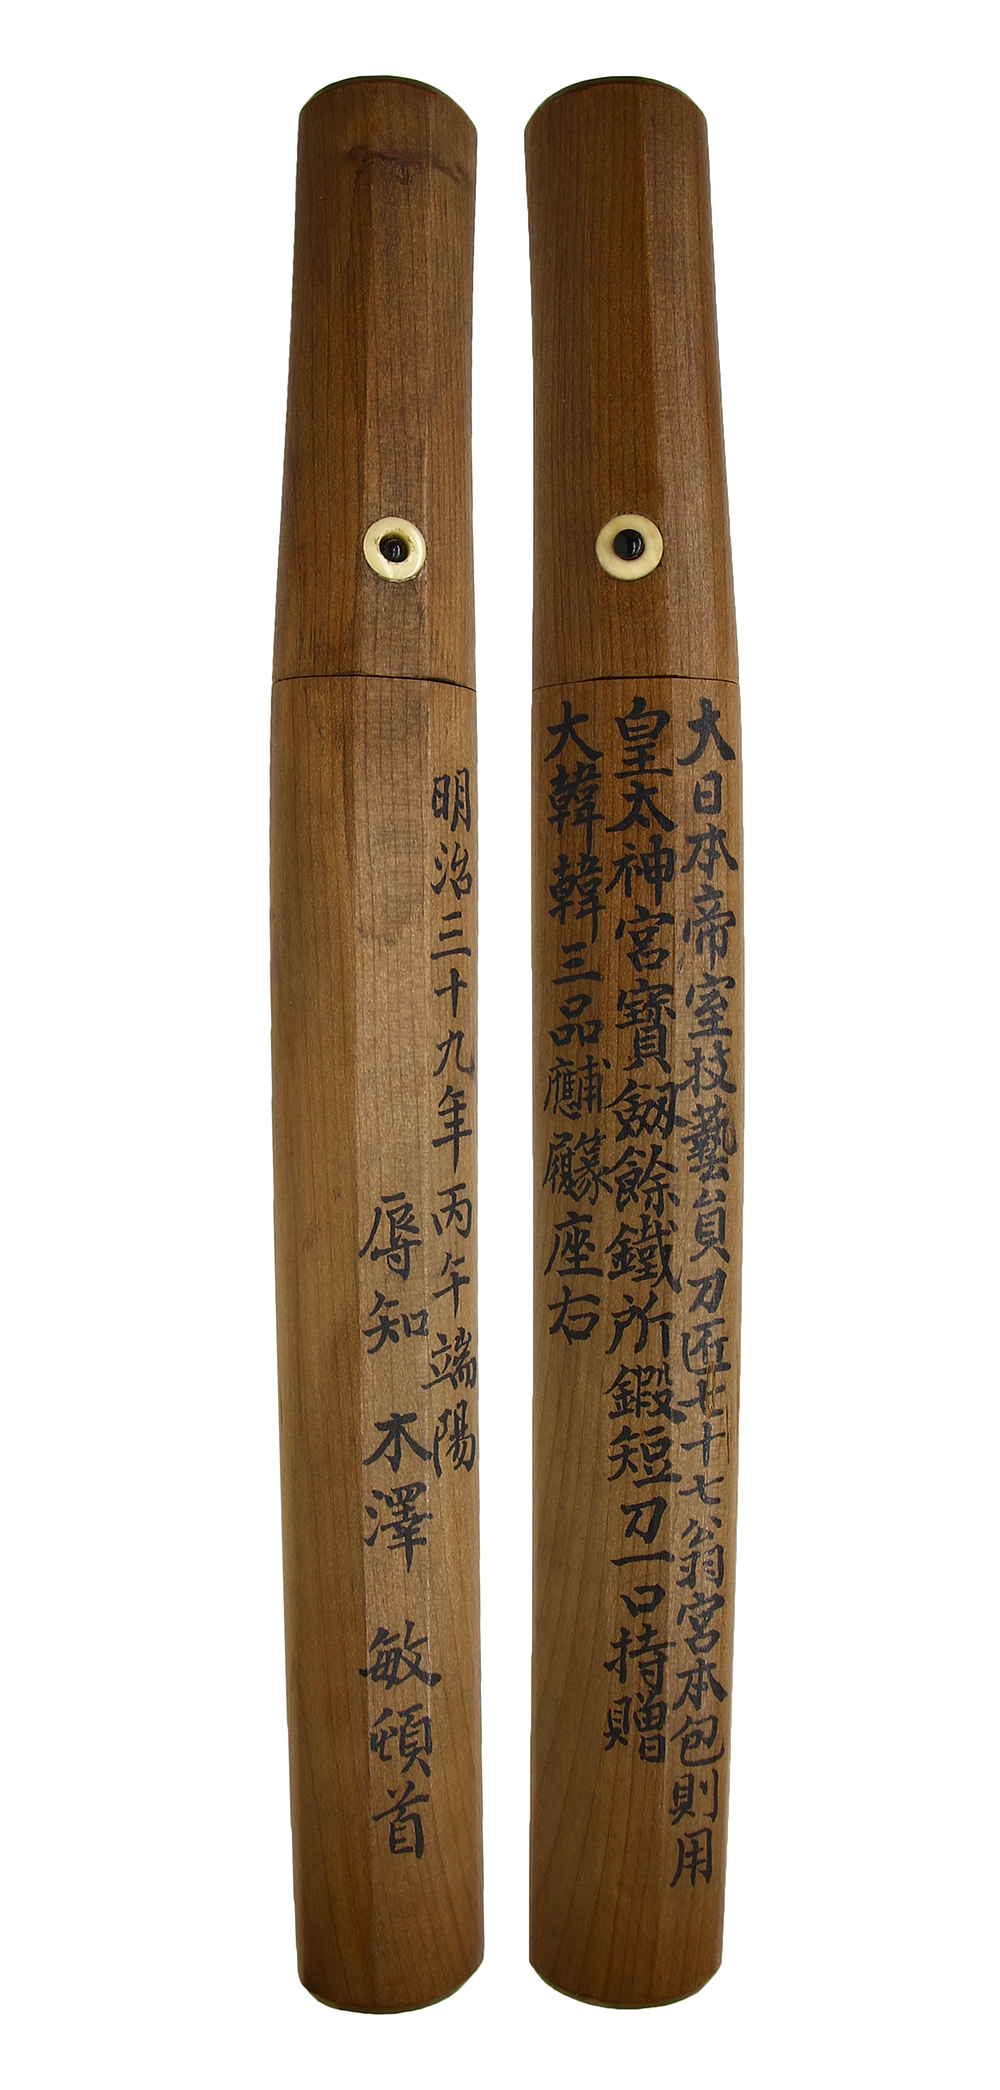 大日本帝室技藝員刀匠七十七翁宮本包則用
皇太神宮寶劔餘鐵所鍛短刀一口持贈
大韓韓三品甫篆應履座右
明治三十九年丙午端陽
辱知 木澤 敏頓首